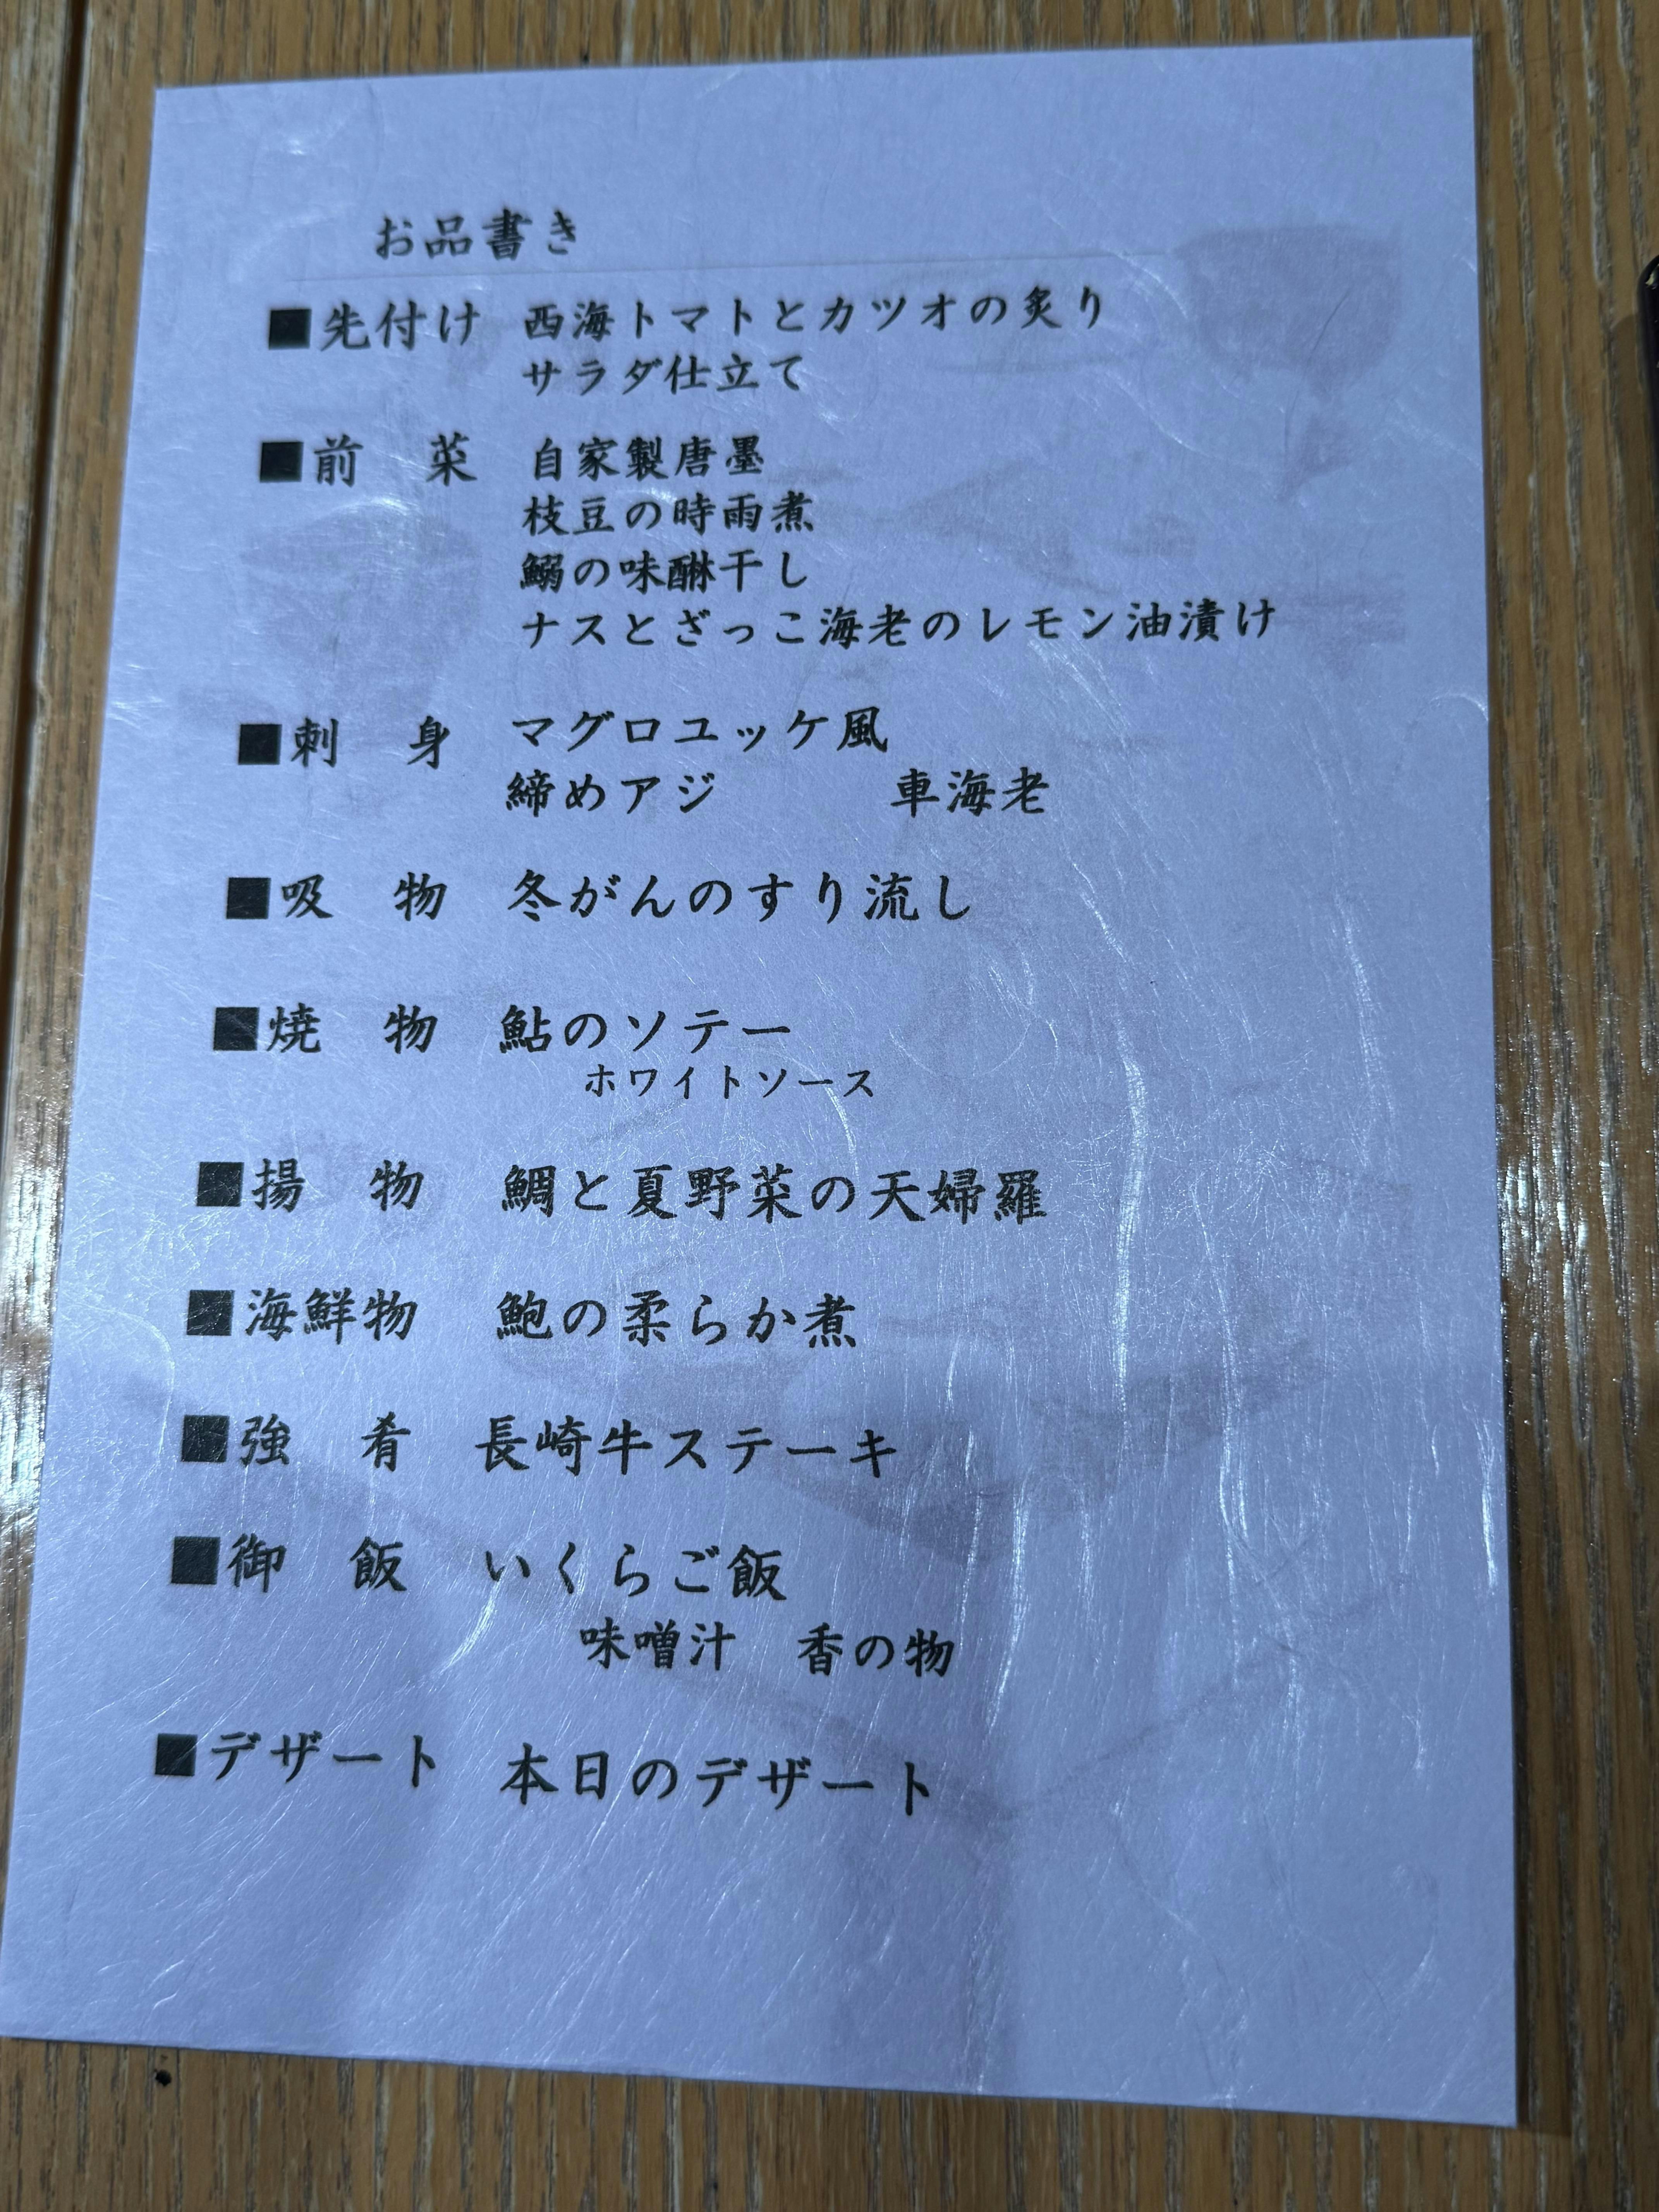 お品書き
■先付け 西海トマトとカツオの炙り
サラダ仕立て
■前 菜 自家製唐墨
枝豆の時雨煮
鰯の味醂干し
ナスとざっこ海老のレモン油漬け
■刺 身 マグロユッケ風
締めアジ 車海老
■吸 物 冬がんのすり流し
■焼 物 鮎のソテー
ホワイトソース
■揚 物 鯛と夏野菜の天婦羅
■海鮮物 鮑の柔らか煮
■強 肴 長崎牛ステーキ
■御 飯 いくらご飯
味噌汁 香の物
■デザート 本日のデザート